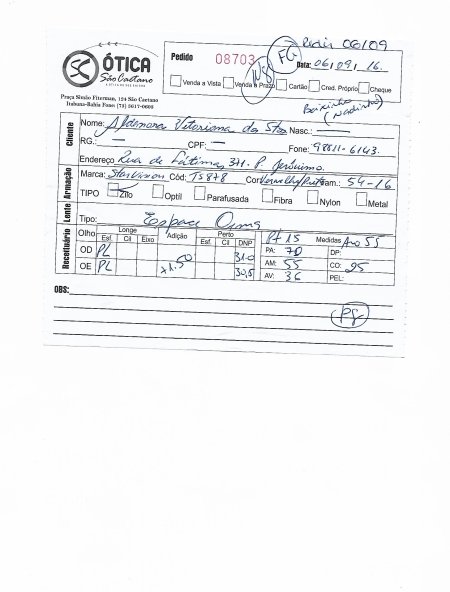 Pedir 06/09
ÓTICA
São Caetano
Praça Sinão Fiterman, 124 São Caetano
Itabuna-Bahia Fone (73) 3617-0603
Pedido 08703 FG Data: 06, 09, 16.
Venda a Vista Venda a Prazo Cartão Cred. Próprio Cheque
Cliente
Nome: Aldenora Vitoriana dos Stos Nasc.: —
RG.: — CPF: — Fone: 98811-6143.
Endereço Rua de Fátima, 371. P. Jerônimo.
Armação
Marca: Starvision Cód: TS878 Cor Vermelho/Preto Tam.: 54-16
TIPO Zilo Optil Parafusada Fibra Nylon Metal
Lente
Tipo: Espace Orma
Receituário
Olho Longe Adição Perto Pt 15 Medidas Aro 55
Esf. Cil Eixo Esf. Cil DNP PA: 70 DP:
OD PL 31.0 AM: 55 CO: 25
OE PL +1.50 30,5 AV: 36 PEL:
OBS: